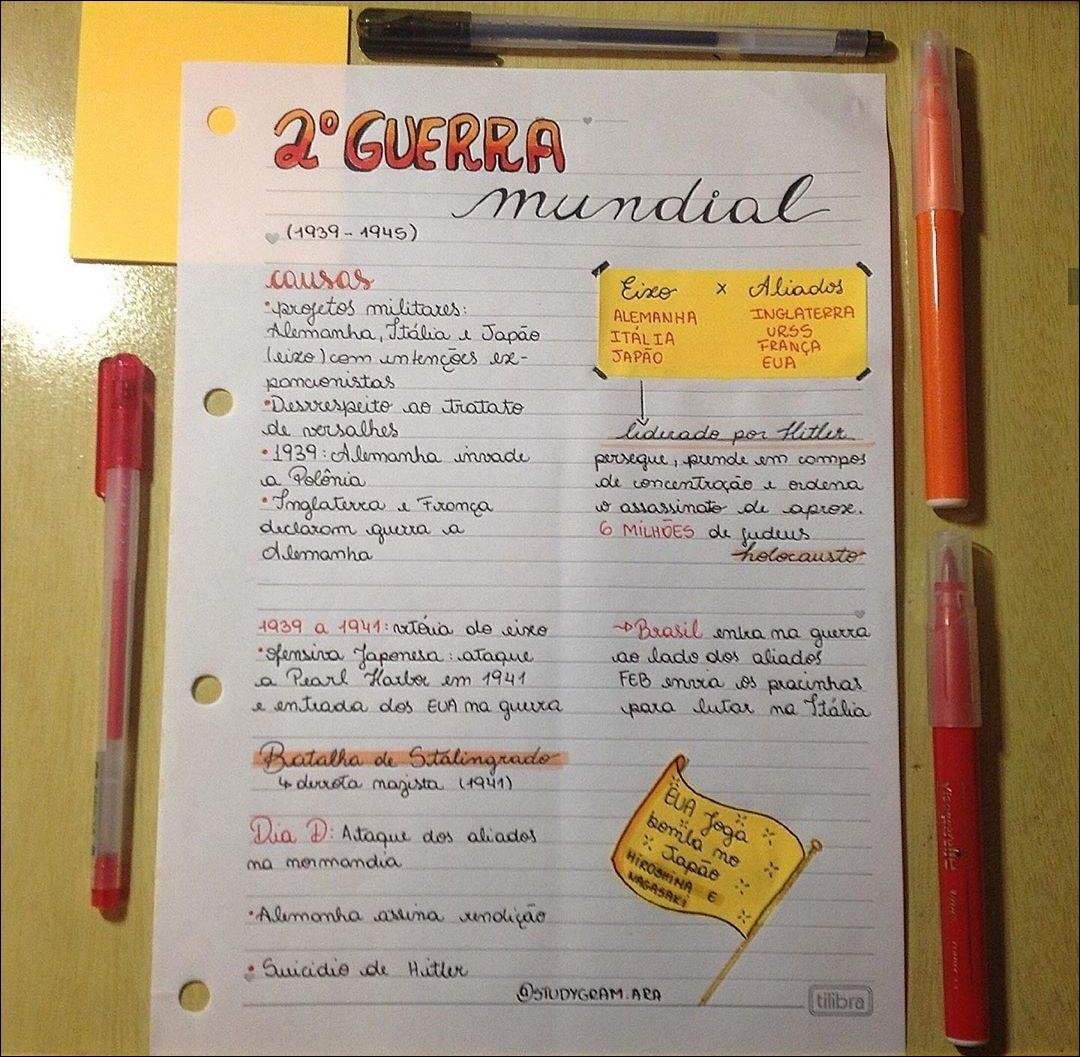 2º GUERRA
mundial
(1939 - 1945)
causas
• projetos militares:
Alemanha, Itália e Japão
(eixo) com intenções ex-
pancionistas
• Desrrespeito ao tratato
de versalhes
• 1939: Alemanha invade
a Polônia
• Inglaterra e França
declaram guerra a
Alemanha
Eixo x Aliados
ALEMANHA INGLATERRA
ITÁLIA URSS
JAPÃO FRANÇA
EUA
liderado por Hitler
persegue, prende em campos
de concentração e ordena
o assassinato de aprox.
6 MILHÕES de judeus
holocausto
1939 a 1941: vitória do eixo
• ofensiva Japonesa: ataque
a Pearl Harbor em 1941
e entrada dos EUA na guerra
→ Brasil entra na guerra
ao lado dos aliados
FEB envia os pracinhas
para lutar na Itália
Batalha de Stalingrado
↳ derrota nazista (1941)
Dia D: Ataque dos aliados
na normandia
• Alemanha assina rendição
• Suicidio de Hitler
EUA joga
bomba no
Japão
HIROSHIMA E
NAGASAKI
@STUDYGRAM.ARA
tilibra